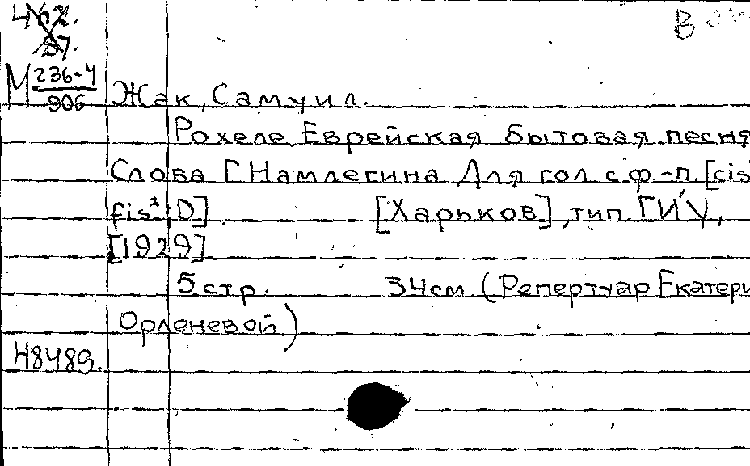 М 236-4
906
Жак, Самуил.
Рохеле. Еврейская бытовая песня
Слова Г. Намлегина Для гол. с ф-п. [cis
fis² D] [Харьков], тип. ГИУ,
[1929]
5 стр. 34 см. (Репертуар Екатери
Орленевой)
48489.